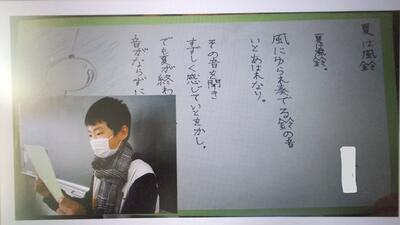 夏は風鈴
夏は風鈴。
風にゆられ奏でる鈴の音
いとあはれなり。
その音を聞き
すずしく感じていとをかし。
でも夏が終わ
音がならずに